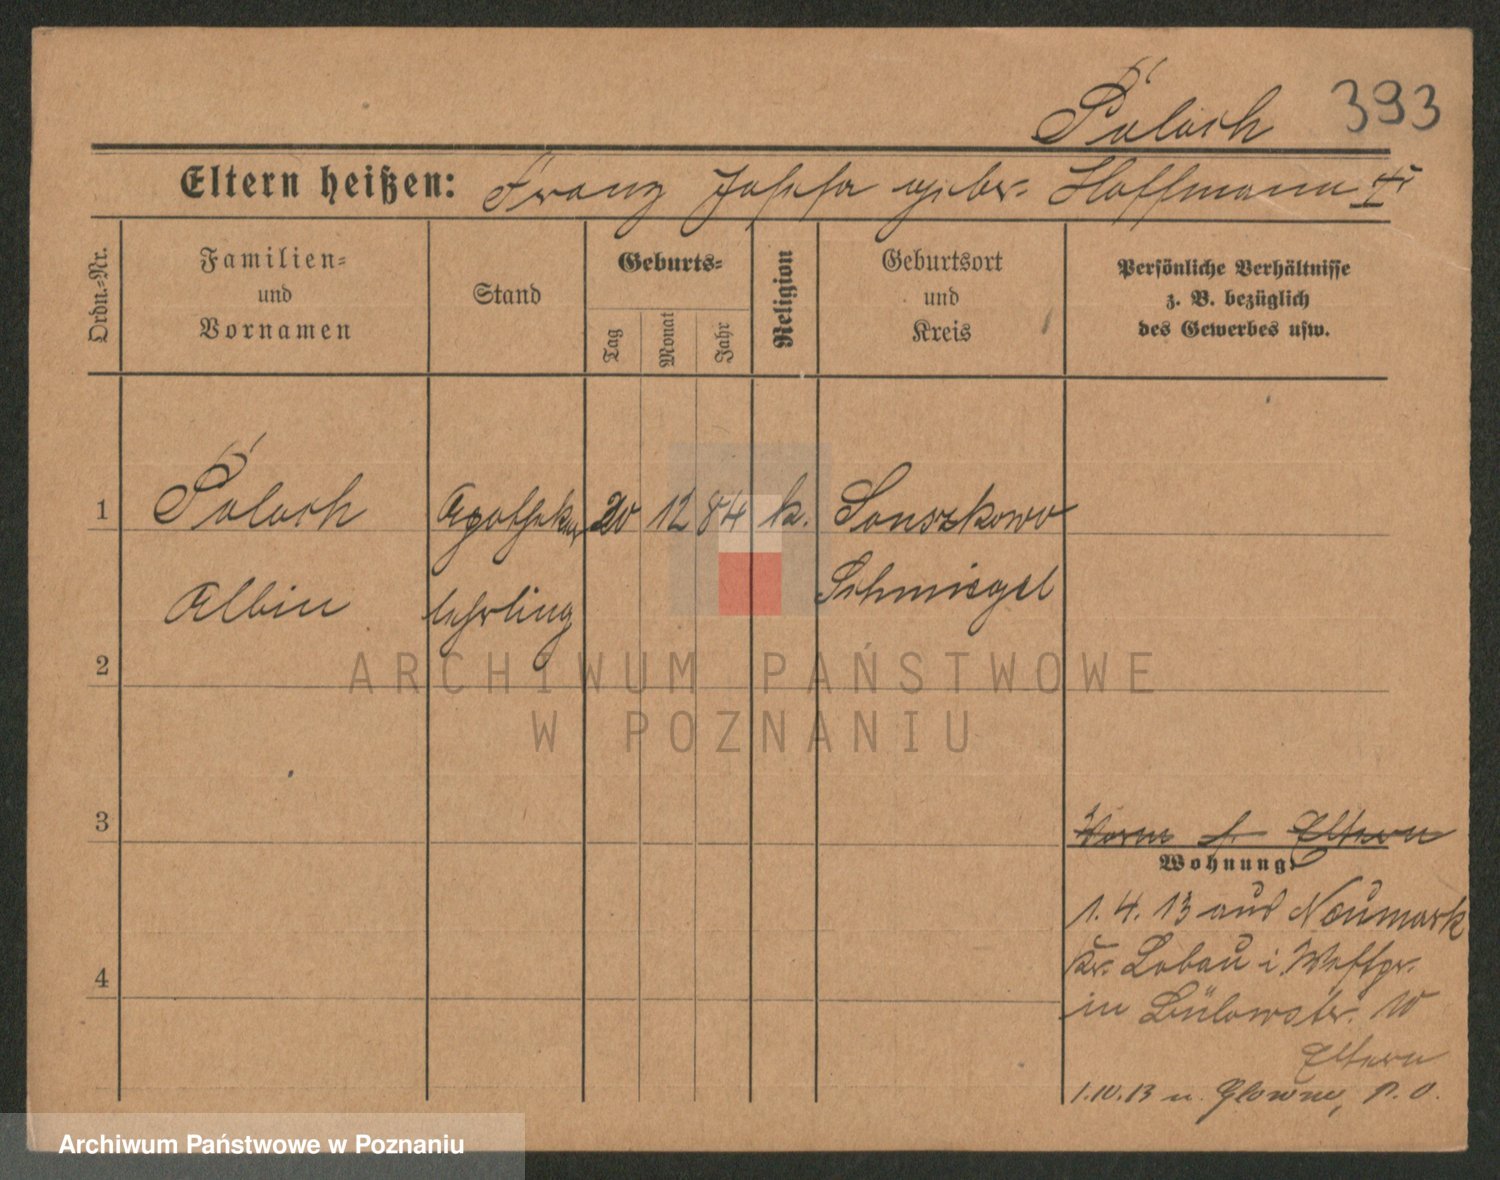 Paloch 393
Eltern heißen: Franz Josefa geber. Hoffmann
Ordn.-Nr.
Familien-
und
Vornamen
Stand
Geburts-
Tag
Monat
Jahr
Religion
Geburtsort
und
Kreis
Persönliche Verhältnisse
z. B. bezüglich
des Gewerbes usw.
1 Paloch Apotheker 20 12 84 k.
Albin lehrling Schmiegel
2
3
Eltern
Wohnung:
1. 4. 13 aus Neumark
Kr. Löbau i. Westpr.
in Bülowstr. 10
Eltern
1.10.13 n. Glowno, P. O.
4
ARCHIWUM PAŃSTWOWE
W POZNANIU
Archiwum Państwowe w Poznaniu